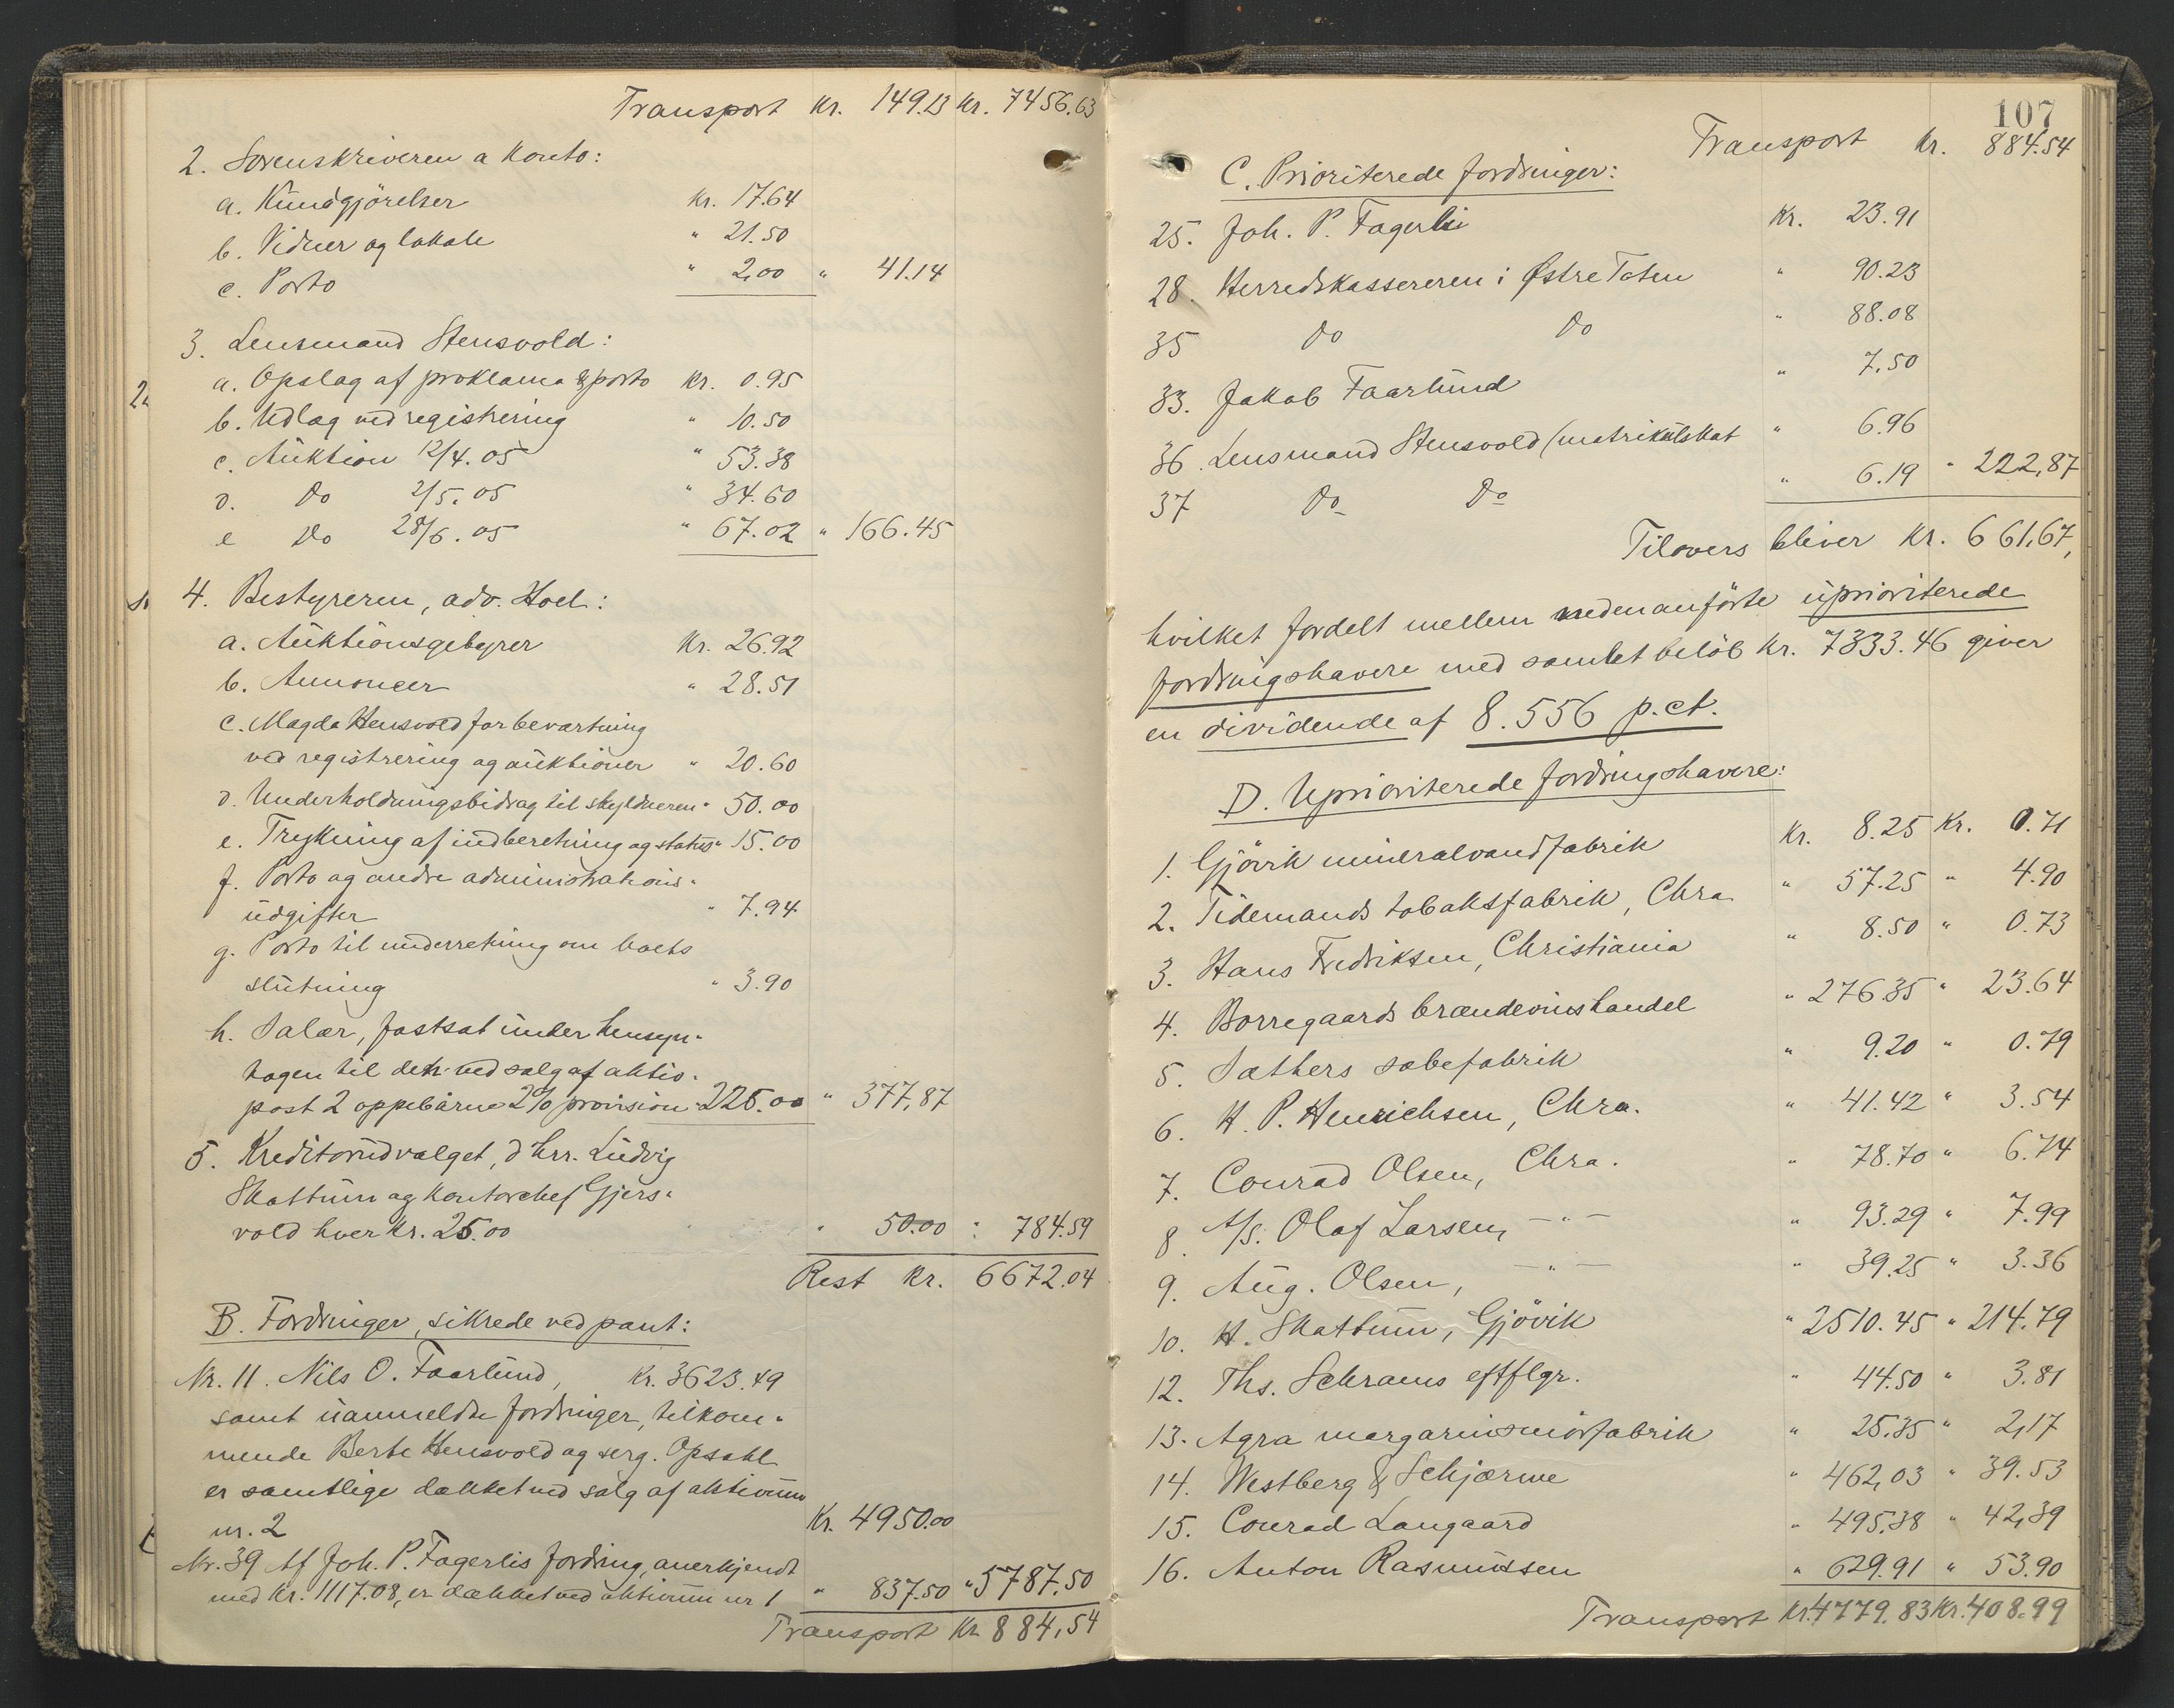 Transport Kr. 149.13 Kr. 7456.63
2. Sorenskriveren a Konto:
a. Kundgjörelser Kr. 17.64
b. Vidner og lokale " 21.50
c. Porto " 2,00 " 41.14
3. Lensmand Stensvold:
a. Opslag af proklama & porto Kr. 0.95
b. Udlæg ved registrering " 10.50
c. Auktion 12/4.05 " 53.38
d. Do 2/5.05 " 34.60
e Do 28/6.05 " 67.02 " 166.45
4. Bestyreren, adv. Hoel:
a. Auktionsgebyrer Kr. 26.92
b. Annoncer " 28.51
c. Magda Hensvold for bevartning
ved registrering og auktioner " 20.60
d. Underholdningsbidrag til skyldneren " 50.00
e. Trykning af indberetning og status " 15.00
f. Porto og andre administrations-
udgifter " 7.94
g. Porto til underretning om boets
slutning " 3.90
h. Salær, fastsat under hensyn-
tagen til den ved salg af aktiv-
post 2 oppebårne 2% provision " 225.00 " 377,87
5. Kreditorudvalget, d'hrr. Ludvig
Skattum og Kontorchef Gjers-
vold hver Kr. 25.00 " 50.00 : 784.59
Rest Kr. 6672.04
B. Fordringer, sikrede ved pant:
Nr. 11. Nils O. Faarlund, Kr. 3623.49
samt uanmeldte fordringer, tilkom-
mende Berte Hensvold og serg. Opsahl
er samtlige dækket ved salg af aktivum
nr. 2 Kr. 4950.00
Nr. 39 Af Joh. P. Fagerlis fordring, anerkjendt
med Kr. 1117.08, er dækket ved aktivum nr 1 " 837.50 " 5787.50
Transport Kr 884,54
107
Transport Kr. 884.54
C. Prioriterede fordringer:
25. Joh. P. Fagerli Kr. 23.91
28. Herredskassereren i Østre Toten " 90.23
35 Do Do " 88.08
33. Jakob Faarlund " 7.50
36. Lensmand Stensvold (matrikulskat " 6.96
37 Do Do " 6.19 " 222,87
Tilovers bliver Kr. 661,67,
hvilket fordelt mellem nedenanförte uprioriterede
fordringshavere med samlet belöb Kr. 7333.46 giver
en dividende af 8.556 p.ct.
D. Uprioriterede fordringshavere:
1. Gjövik mineralvandfabrik Kr. 8.25 Kr. 0.71
2. Tidemands tobaksfabrik, Chra " 57.25 " 4.90
3. Hans Fredriksen, Christiania " 8.50 " 0.73
4. Borregaards brændevinshandel " 276.35 " 23.64
5. Sæthers sæbefabrik " 9.20 " 0.79
6. H. P. Henrichsen, Chra. " 41.42 " 3.54
7. Conrad Olsen, Chra. " 78.70 " 6.74
8. A/S. Olaf Larsen, — " — " 93.29 " 7.99
9. Aug. Olsen, — " — " 39.25 " 3.36
10. H. Skattum, Gjövik " 2510.45 " 214.79
12. Ths. Schrams eftflgr. " 44.50 " 3.81
13. Agra margarinsmörfabrik " 25.35 " 2,17
14. Westberg & Schjærme " 462,03 " 39.53
15. Conrad Langaard " 495,38 " 42,39
16. Anton Rasmussen " 629.91 " 53.90
Transport Kr. 4779.83 Kr. 408.99